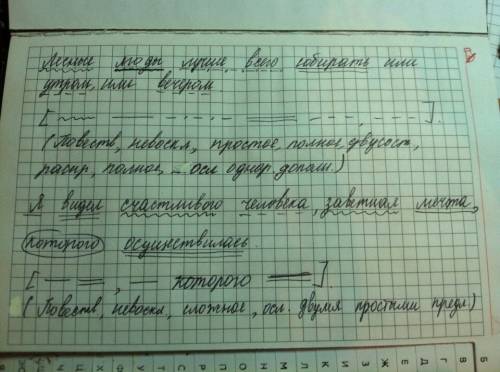 Лесные ягоды лучше всего собирать или
утром, или вечером
[ , ].
(Повеств, невоскл, простое, полное, двусост,
распр, полное, осл. однор. дополн.)
Я видел счастливого человека, заветная мечта,
которого осуществилась.
[ , которого ].
(Повеств, невоскл, сложное, осл. двумя простыми предл.)